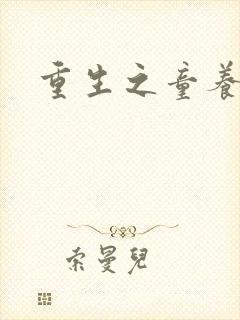 重生之童養
索曼兒